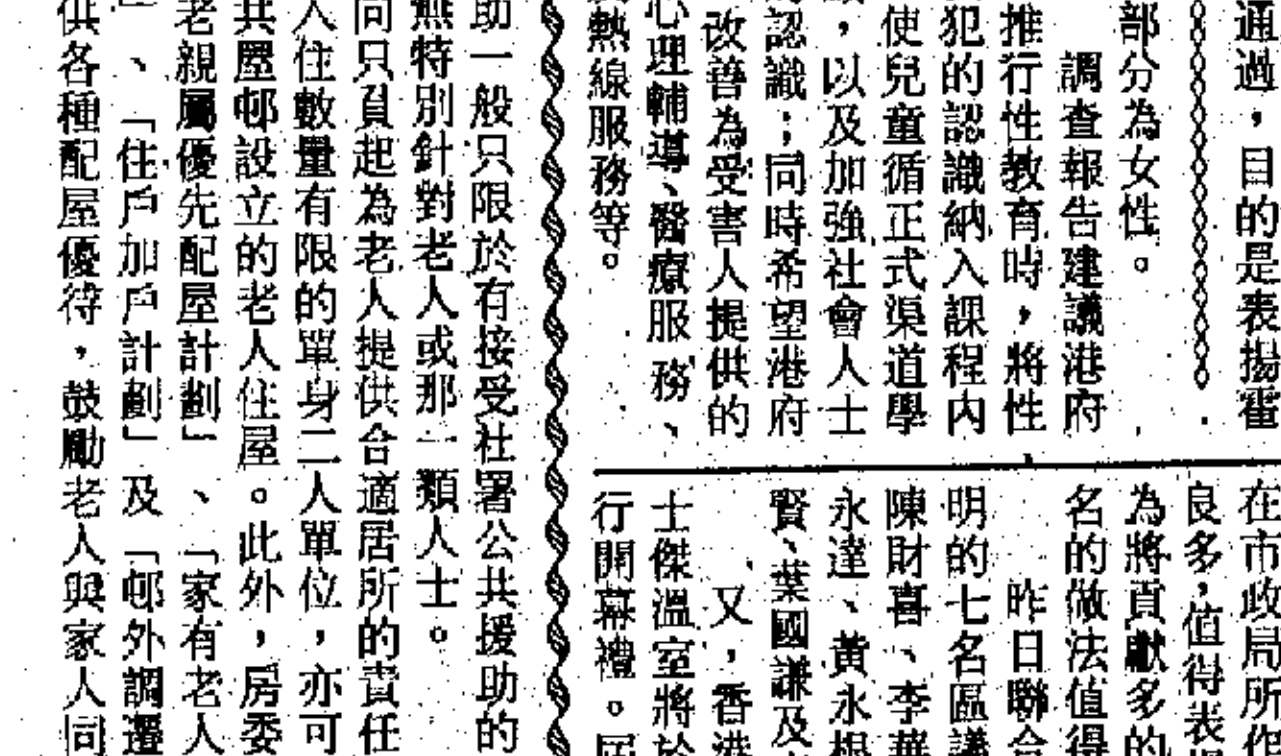 通過，目的是表揚霍
部分為女性。
調查報告建議港府
推行性教育時，將性
犯的認識納入課程內
使兒童循正式渠道學
，以及加強社會人士
認識；同時希望港府
改善為受害人提供的
心理輔導、醫療服務、
熱線服務等。
在市政局所作
良多，值得表
為將貢獻多的
名的做法值得
昨日聯合
明的七名區議
陳財喜、李華
永達、黃永根
賢、葉國謙及
又，香港
士傑溫室將於
行開幕禮。屆
助一般只限於有接受社署公共援助的
無特別針對老人或那一類人士。
同只負起為老人提供合適居所的責任
入住數量有限的單身二人單位，亦可
共屋邨設立的老人住屋。此外，房委
老親屬優先配屋計劃」、「家有老人
」、「住戶加戶計劃」及「邨外調遷
供各種配屋優待，鼓勵老人與家人同